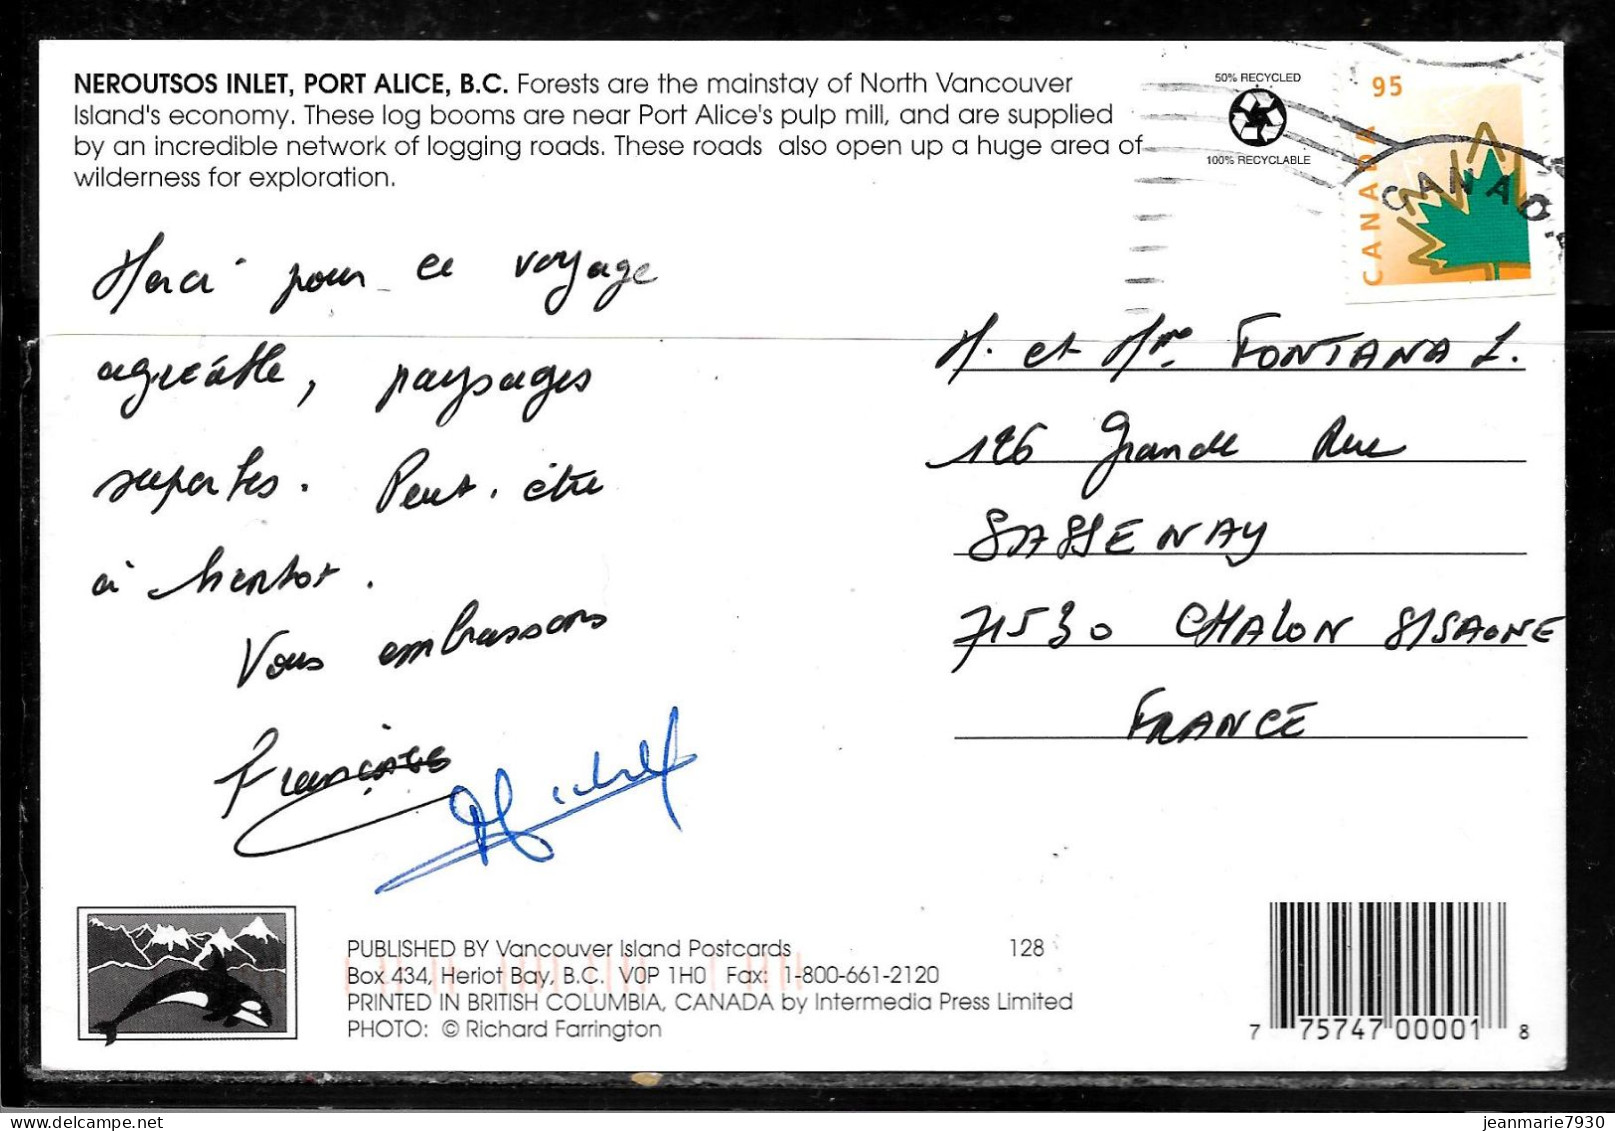 NEROUTSOS INLET, PORT ALICE, B.C. Forests are the mainstay of North Vancouver
Island's economy. These log booms are near Port Alice's pulp mill, and are supplied
by an incredible network of logging roads. These roads also open up a huge area of
wilderness for exploration.
50% RECYCLED
100% RECYCLABLE
95
CANADA
CANADA
Merci pour ce voyage
agréable, paysages
superbes. Peut-être
à bientot.
Vous embrassons
Françoise
Michel
M. et Mme FONTANA L.
126 Grande Rue
SASSENAY
71530 CHALON S/SAONE
FRANCE
PUBLISHED BY Vancouver Island Postcards 128
Box 434, Heriot Bay, B.C. V0P 1H0 Fax: 1-800-661-2120
PRINTED IN BRITISH COLUMBIA, CANADA by Intermedia Press Limited
PHOTO: © Richard Farrington
7 75747 00001 8
jeanmarie7930